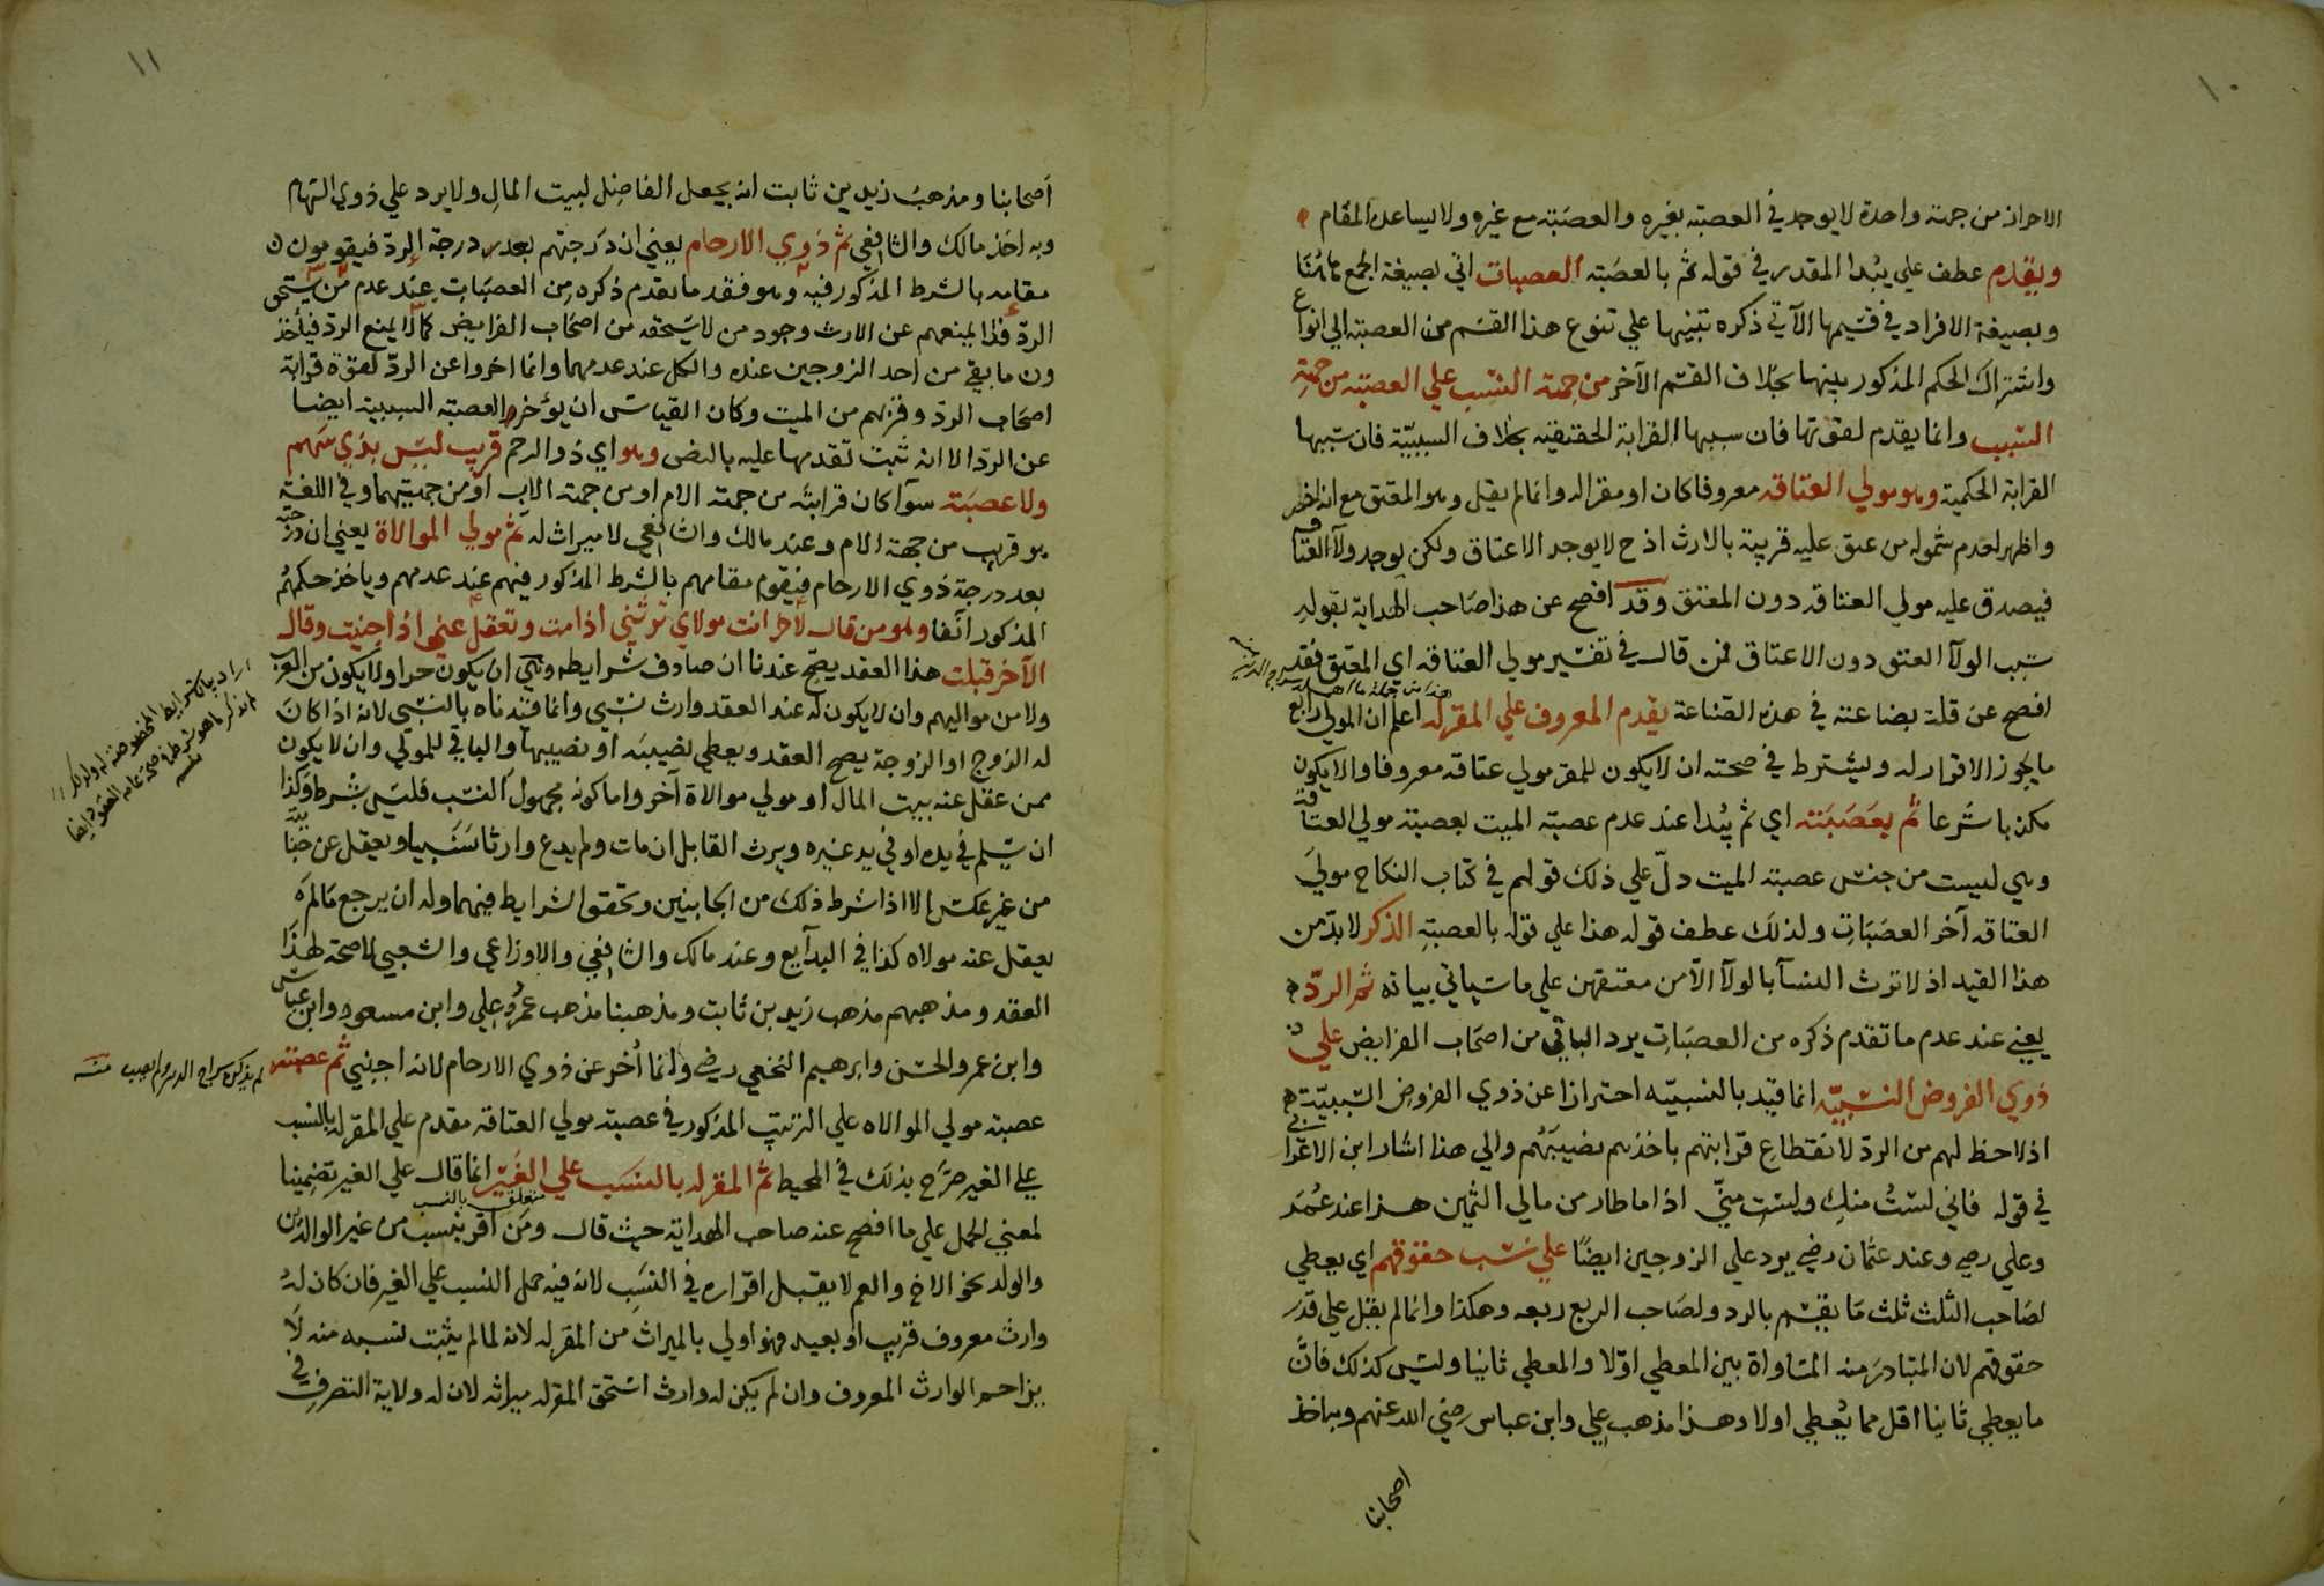 ١٠
الاحراز من جهة واحدة لا يوجد في العصبة بغيره والعصبة مع غيره ولا يساعده المقام
ويقدم عطف علي يبدا المقدر في قوله ثم بالعصبة العصبات اتي بصيغة الجمع هاهنا
وبصيغة الافراد في قسيمها الآتي ذكره تنبيها علي تنوع هذا القسم من العصبة الي انواع
واشتراك الحكم المذكور بينها بخلاف القسم الآخر من جهة النسب علي العصبة من جهة
السبب وانما يقدم لقوتها فان سببها القرابة الحقيقية بخلاف السببية فان سببها
القرابة الحكمية وهو مولي العتاقة معروفا كان او مقرا له وانما لم يقل وهو المعتق مع انه اخصر
واظهر لعدم شموله من عتق عليه قريبه بالارث اذ ح لا يوجد الاعتاق ولكن يوجد ولآ العتاقة
فيصدق عليه مولي العتاقه دون المعتق وقد افصح عن هذا صاحب الهداية بقوله
سبب الولآ العتق دون الاعتاق فمن قال في تفسير مولي العتاقه اي المعتق فقد
افصح عن قلة بضاعته في هذه الصناعة يقدم المعروف علي المقر له اعلم ان المولي رابع
ما يجوز الاقرار له ويشترط في صحته ان لا يكون للمقر مولي عتاقه معروفا والا يكون
مكذبا شرعا ثم بعصبته اي ثم يبدا عند عدم عصبة الميت بعصبة مولي العتاقة
وهي ليست من جنس عصبة الميت دلّ علي ذلك قولهم في كتاب النكاح مولي
العتاقه آخر العصبات ولذلك عطف قوله هذا علي قوله بالعصبة الذكر لا بدّ من
هذا القيد اذ لا ترث النسآ بالولآ الا من معتقهن علي ما سياتي بيانه ثم الردّ
يعني عند عدم ما تقدم ذكره من العصبات يرد الباقي من اصحاب الفرايض علي
ذوي الفروض النسبيّه انما قيّد بالنسبيّه احترازا عن ذوي الفروض السببيّة
اذ لا حظ لهم من الردّ لانقطاع قرابتهم باخذهم نصيبهم والي هذا اشار ابن الاعرابي
في قوله فاني لستُ منكِ ولستِ منّي اذا ما طار من مالي الثمين هذا عند عمر
وعلي رضي وعند عثمان رضي يرد علي الزوجين ايضًا علي نسب حقوقهم اي يعطي
لصاحب الثلث ثلث ما يقسم بالرد ولصاحب الربع ربعه وهكذا وانما لم يقل علي قدر
حقوقهم لان المتبادر منه المساواة بين المعطي اوّلا والمعطي ثانيا وليس كذلك فانّ
ما يعطي ثانيا اقل مما يُعطي اولا وهذا مذهب علي وابن عباس رضي الله عنهم وبه اخذ
اصحابنا
١١
أصحابنا ومذهبُ زيد بن ثابت انه يجعل الفاضل لبيت المال ولا يرد علي ذوي السهام
وبه اخذ مالك والشافعي ثم ذوي الارحام يعني ان درجتهم بعد درجة الردّ فيقومون
مقامه بالشرط المذكور فيه وهو فقد ما تقدم ذكره من العصبات عند عدم من يستحق
الردّ فلا يمنعهم عن الارث وجود من لا يستحقه من اصحاب الفرايض كما لا يمنع الردّ فياخذ
ون ما بقي من احد الزوجين عنده والكل عند عدمهما وانما اخروا عن الردّ لقوة قرابة
اصحاب الردّ وقربهم من الميت وكان القياس ان يؤخر العصبة السببية ايضا
عن الردّ الا انه ثبت تقدمها عليه بالنص وهو اي ذو الرحم قريب ليس بذي سهم
ولا عصبة سوآ كان قرابته من جهة الام او من جهة الاب او من جهتيهما وفي اللغة
هو قريب من جهة الام وعند مالك والشافعي لا ميراث له ثم مولي الموالاة يعني ان درجته
بعد درجة ذوي الارحام فيقوم مقامهم بالشرط المذكور فيهم عند عدمهم وياخذ حكمهُمُ
المذكور آنفا وهو من قال لآخر انت مولاي ترثني اذا مت وتعقل عني اذا جنيت وقال
الآخر قبلت هذا العقد يصح عندنا ان صادف شرايطه وهي ان يكون حرا ولا يكون من العرب
ولا من مواليهم وان لا يكون له عند العقد وارث نسبي وانما قيدناه بالنسبي لانه اذا كان
له الزوج او الزوجة يصح العقد ويعطي نصيبه او نصيبها والباقي للمولي وان لا يكون
ممن عقل عنه بيت المال او مولي موالاة آخر واما كونه مجهول النسب فليس بشرط وكذا
ان يسلم في يده او في يد غيره ويرث القابل ان مات ولم يدع وارثا نسبيا ويعقل عن جنايته
من غير عكس الا اذا شرط ذلك من الجانبين وتحقق الشرايط فيهما وله ان يرجع مالم
يعقل عنه مولاه كذا في البدآيع وعند مالك والشافعي والاوزاعي والشعبي لا صحة لهذا
العقد ومذهبهم مذهب زيد بن ثابت ومذهبنا مذهب عمر وعلي وابن مسعود وابن عباس
وابن عمر والحسن وابرهيم النخعي رضي وانما أخر عن ذوي الارحام لانه اجنبي ثم عصبته
عصبة مولي الموالاه علي الترتيب المذكور في عصبة مولي العتاقه مقدم علي المقر له بالنسب
علي الغير صرّح بذلك في المحيط ثم المقر له بالنسب علي الغير انما قال علي الغير تضمينا
متعلق بالنسب
لمعني الحمل علي ما افصح عنه صاحب الهداية حيث قال ومن اقر بنسب من غير الوالدين
والولد نحو الاخ والعم لا يقبل اقراره في النسب لانه فيه حمل النسب علي الغير فان كان لهُ
وارث معروف قريب او بعيد فهو اولي بالميراث من المقر له لانه لما لم يثبت نسبه منه لا
يزاحم الوارث المعروف وان لم يكن له وارث استحق المقر له ميراثه لان له ولاية التصرف في